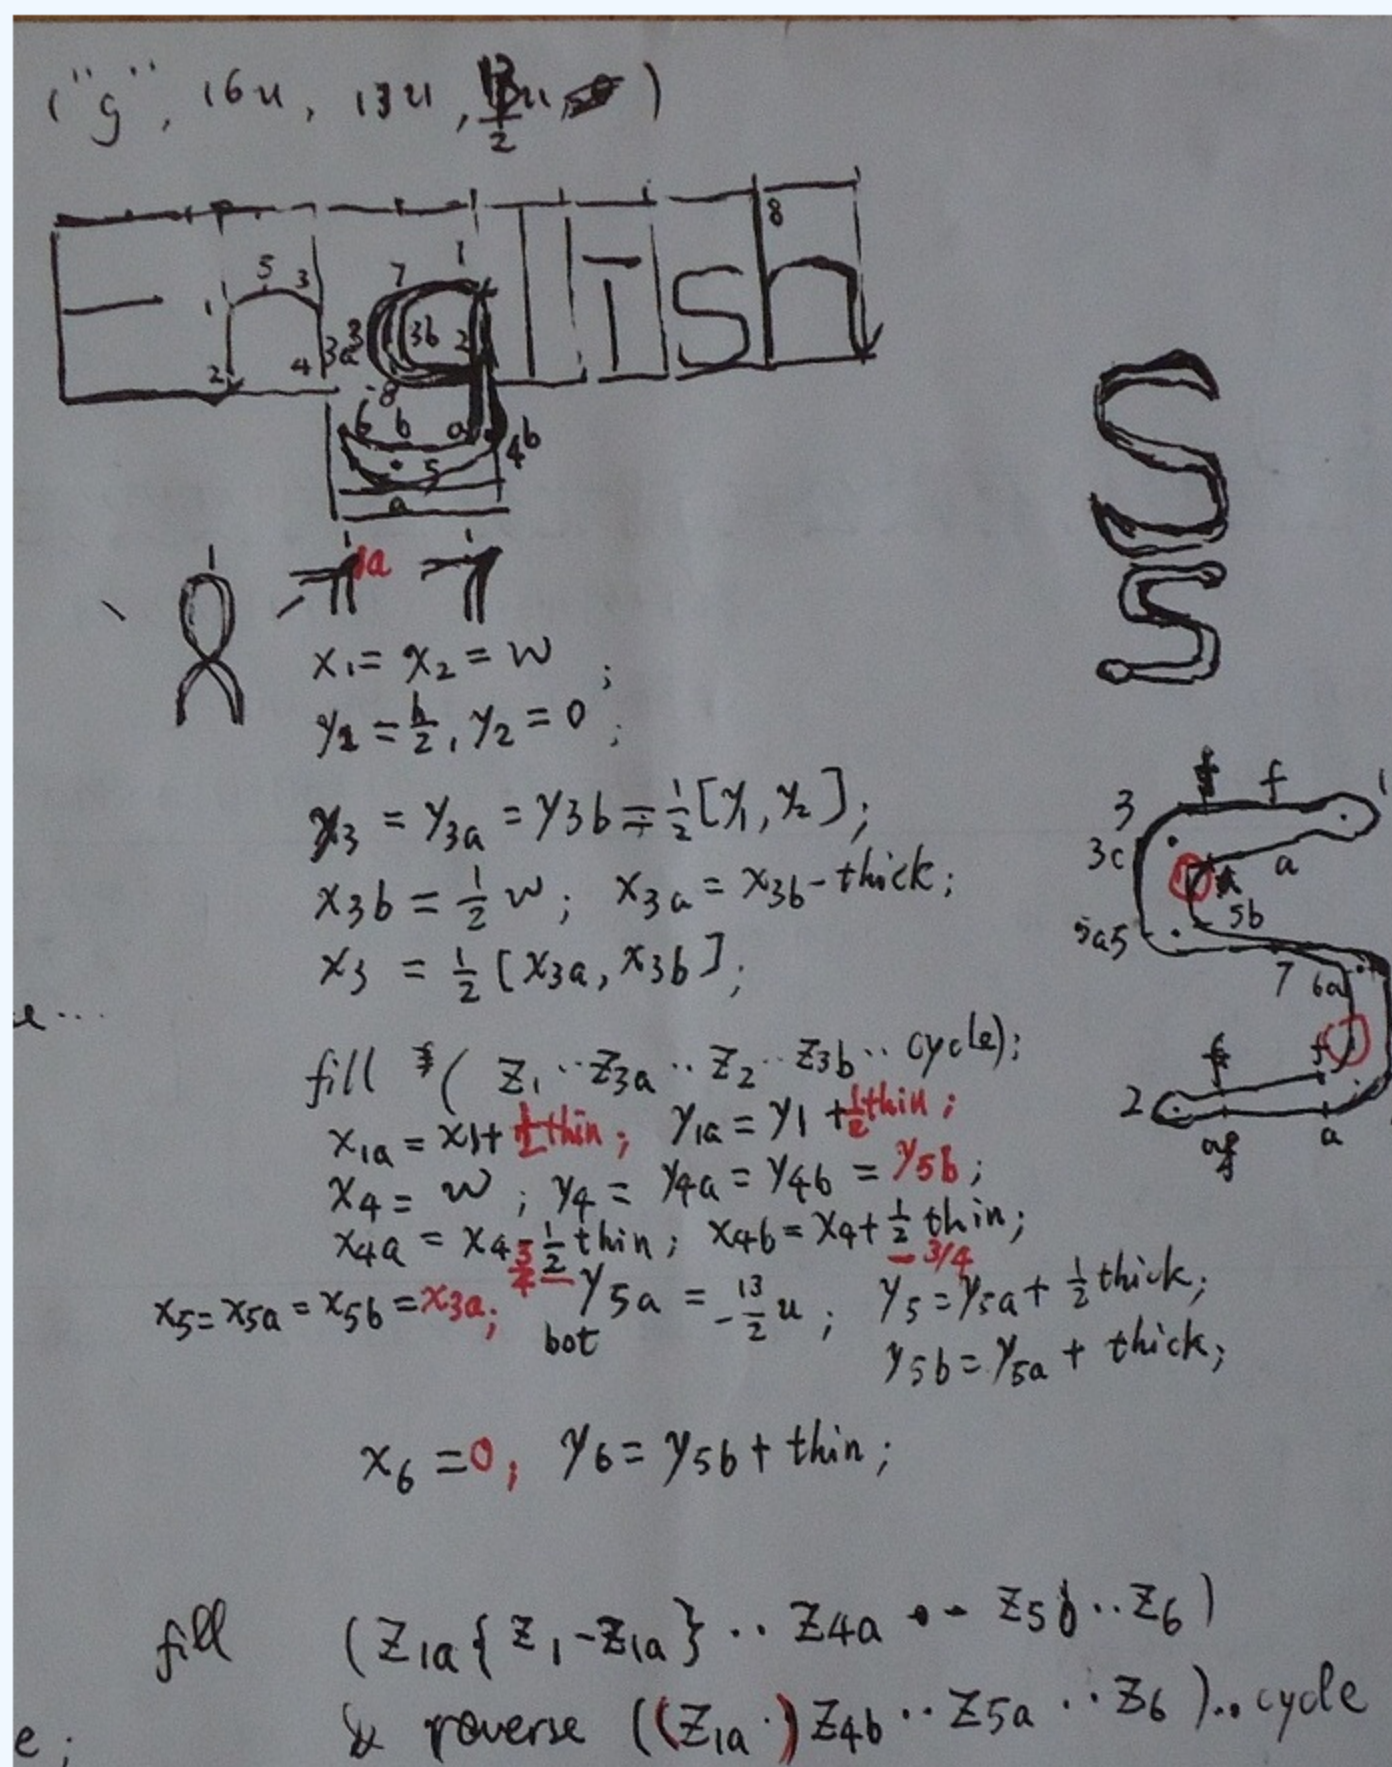 ("g", 16u, 13u, 13/2 u, )
English
8
5 3
1
2 4
7 1
3a 3 3b 2
8
6 b a 4b
5
a
1a
x1 = x2 = w ;
y1 = h/2, y2 = 0 ;
y3 = y3a = y3b = 1/2[y1, y2];
x3b = 1/2 w; x3a = x3b - thick;
x3 = 1/2 [x3a, x3b];
e...
fill (z1..z3a..z2..z3b..cycle);
x1a = x1 + 1/2 thin; y1a = y1 + 1/2 thin;
x4 = w; y4 = y4a = y4b = y5b;
x4a = x4 - 1/2 thin; x4b = x4 + 1/2 thin;
3/4 - 3/4
x5 = x5a = x5b = x3a; y5a = -13/2 u; y5 = y5a + 1/2 thick;
bot
y5b = y5a + thick;
x6 = 0; y6 = y5b + thin;
fill (z1a{z1-z1a}..z4a .. z5b..z6)
& reverse ((z1a.)z4b..z5a..z6)..cycle
e;
f f 1
3
3c a
5a5 5b
7 6a
f
2
af a